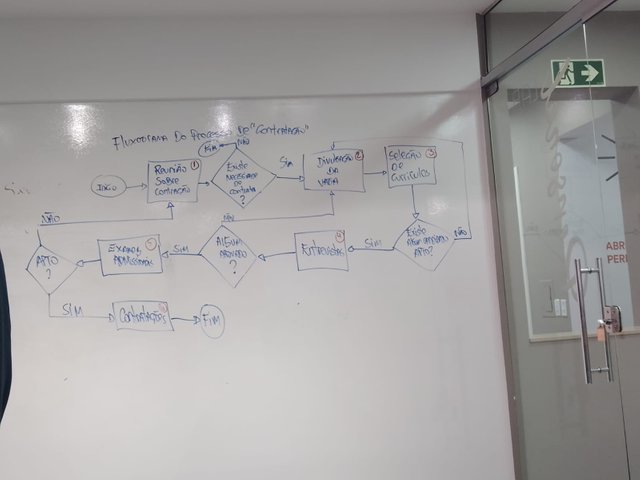 Fluxograma Do Processo De "Contratação"
FIM
NÃO
Início
Reunião
Sobre
Contração
1
Existe
Necessidade
de contratar
?
SIM
Divulgação
Da
Vaga
2
Seleção
De
Currículos
3
NÃO
NÃO
NÃO
APTO
?
Exames
Admissionais
5
SIM
Algum
Aprovado
?
Entrevistas
4
SIM
Existe
Apto?
SIM
Contratações
6
FIM
ABR